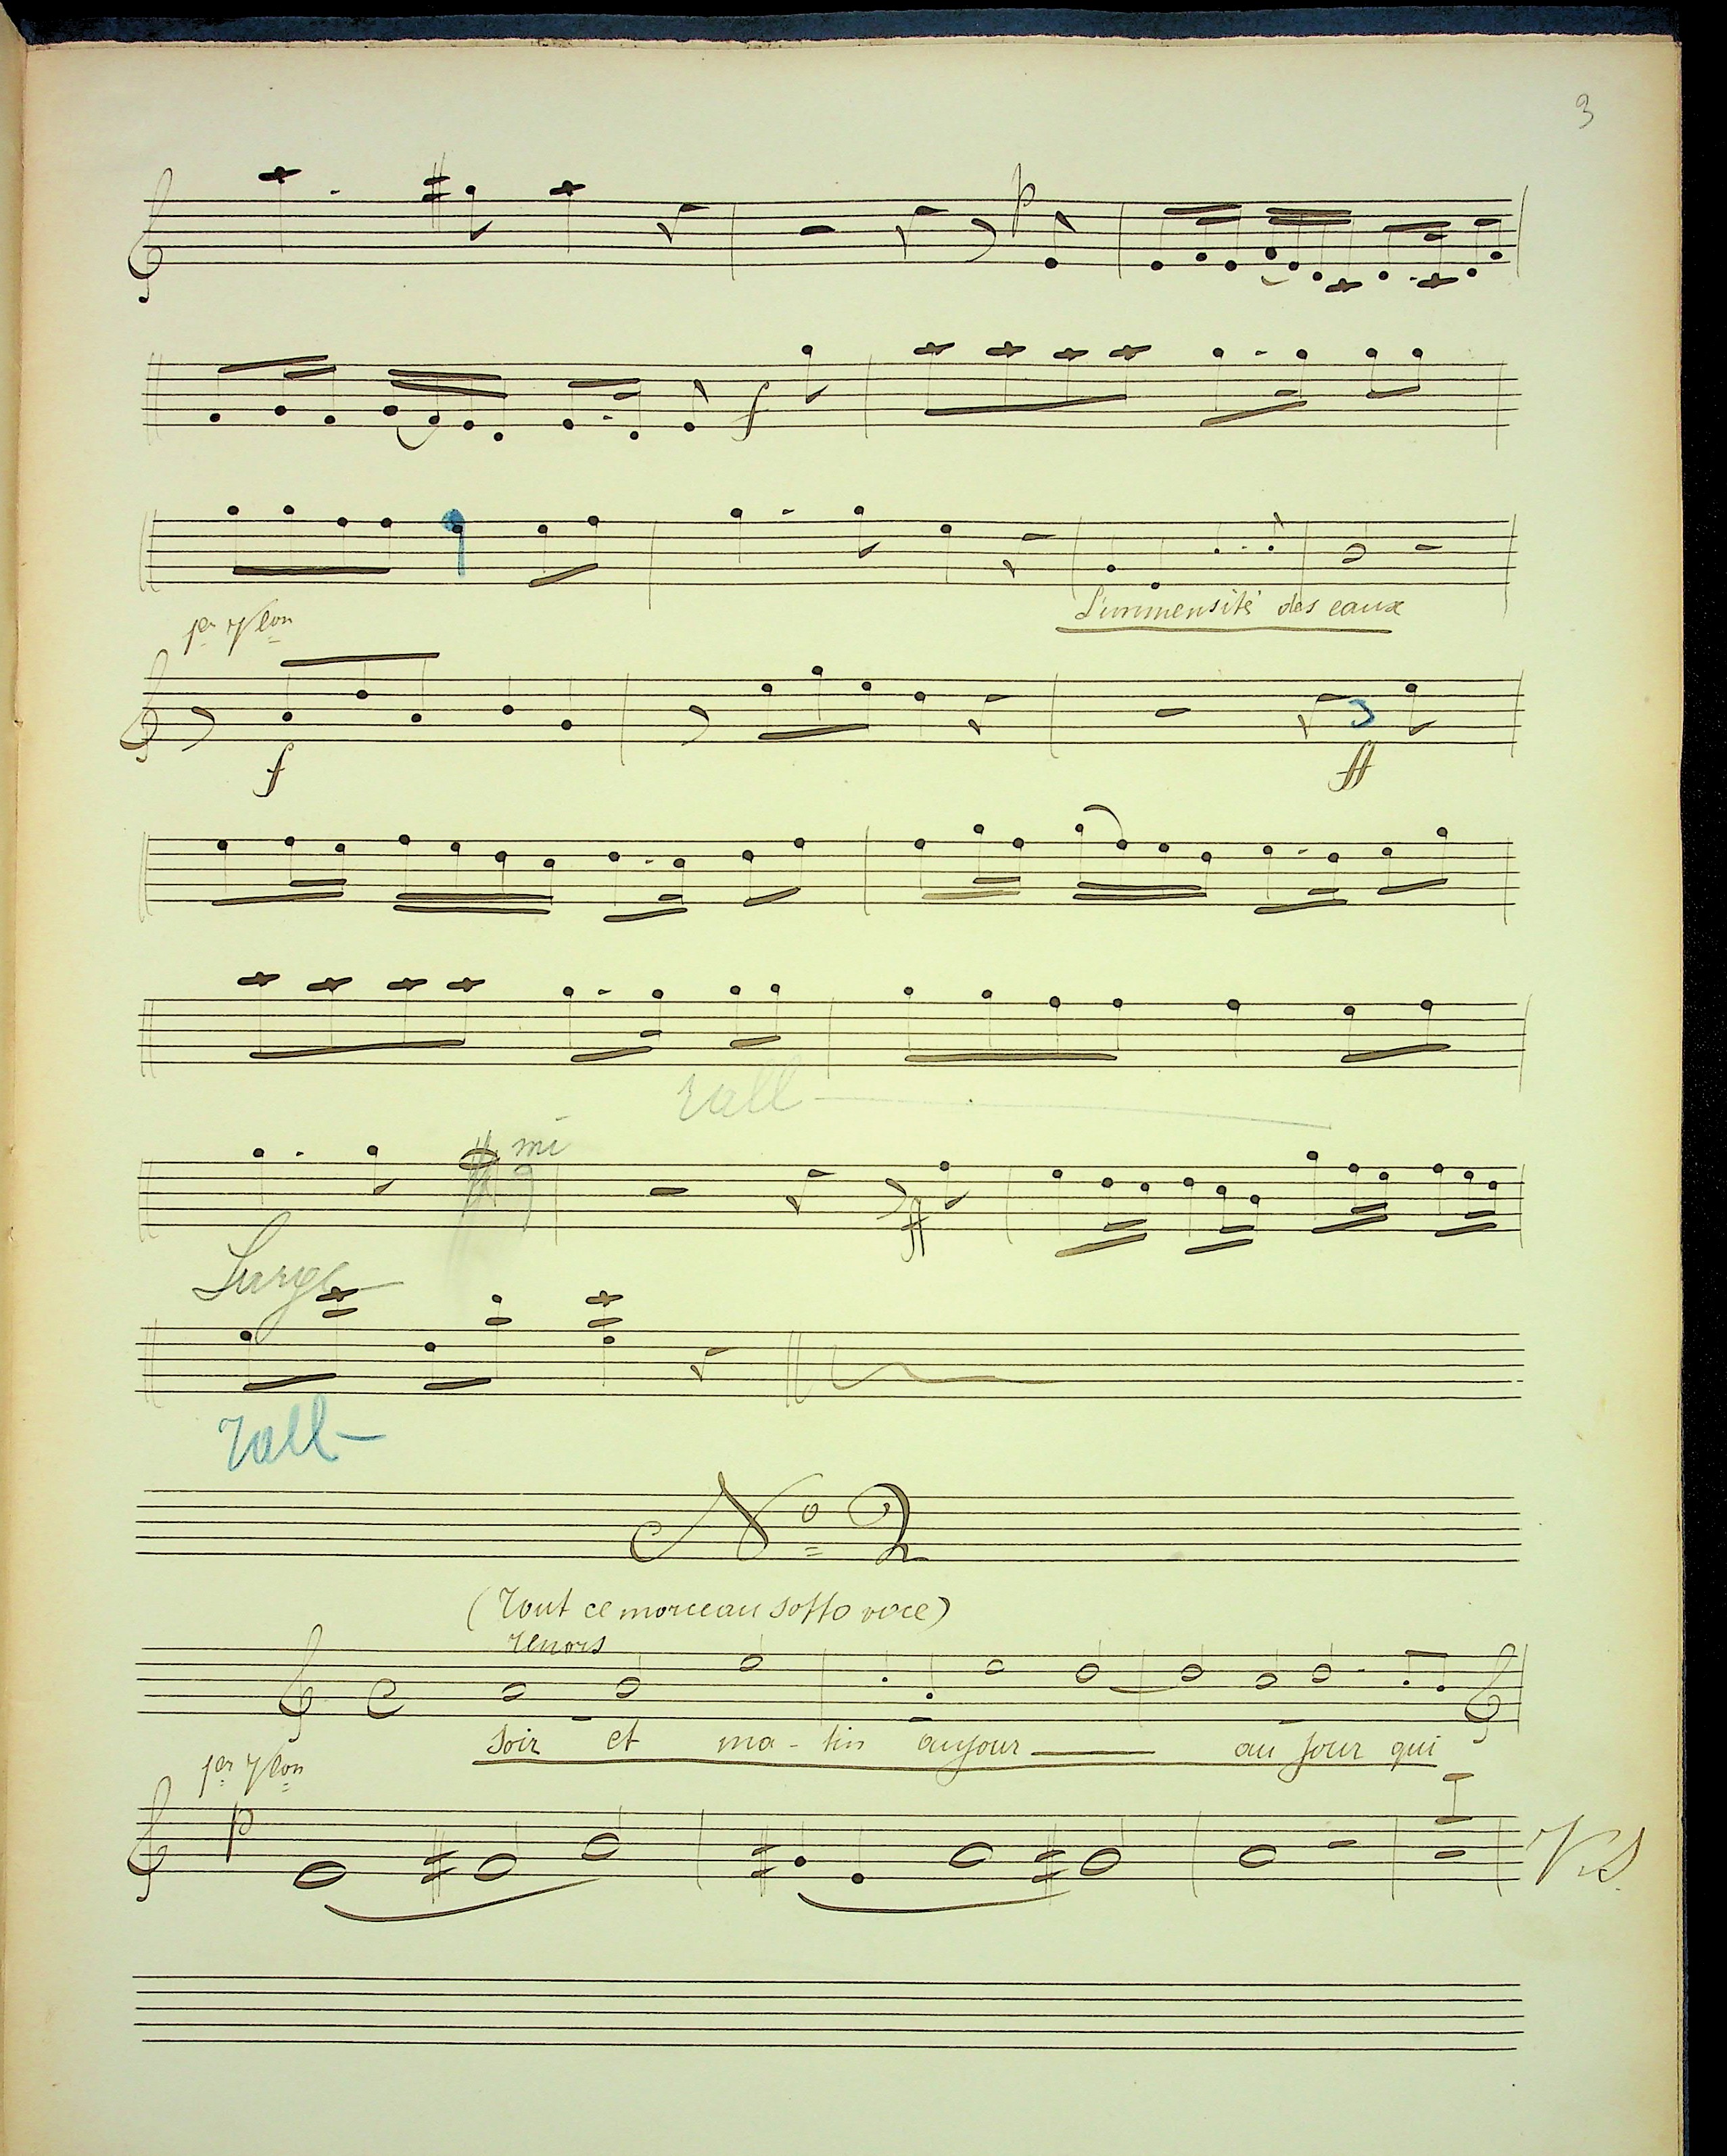 3
p
f
L'immensité des eaux
1er Von
f
ff
rall
mi
ff
Large
rall
No 2
(Tout ce morceau sotto voce)
Tenors
Soir et ma - tin aujour au jour qui
1er Von
p
VS.